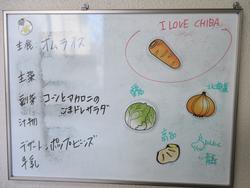 I LOVE CHIBA
主食 オムライス
北海道
主菜
愛知
副菜 コーンとマカロニの
ごまドレサラダ
汁物
高知
デザート:ポップビーンズ
牛乳